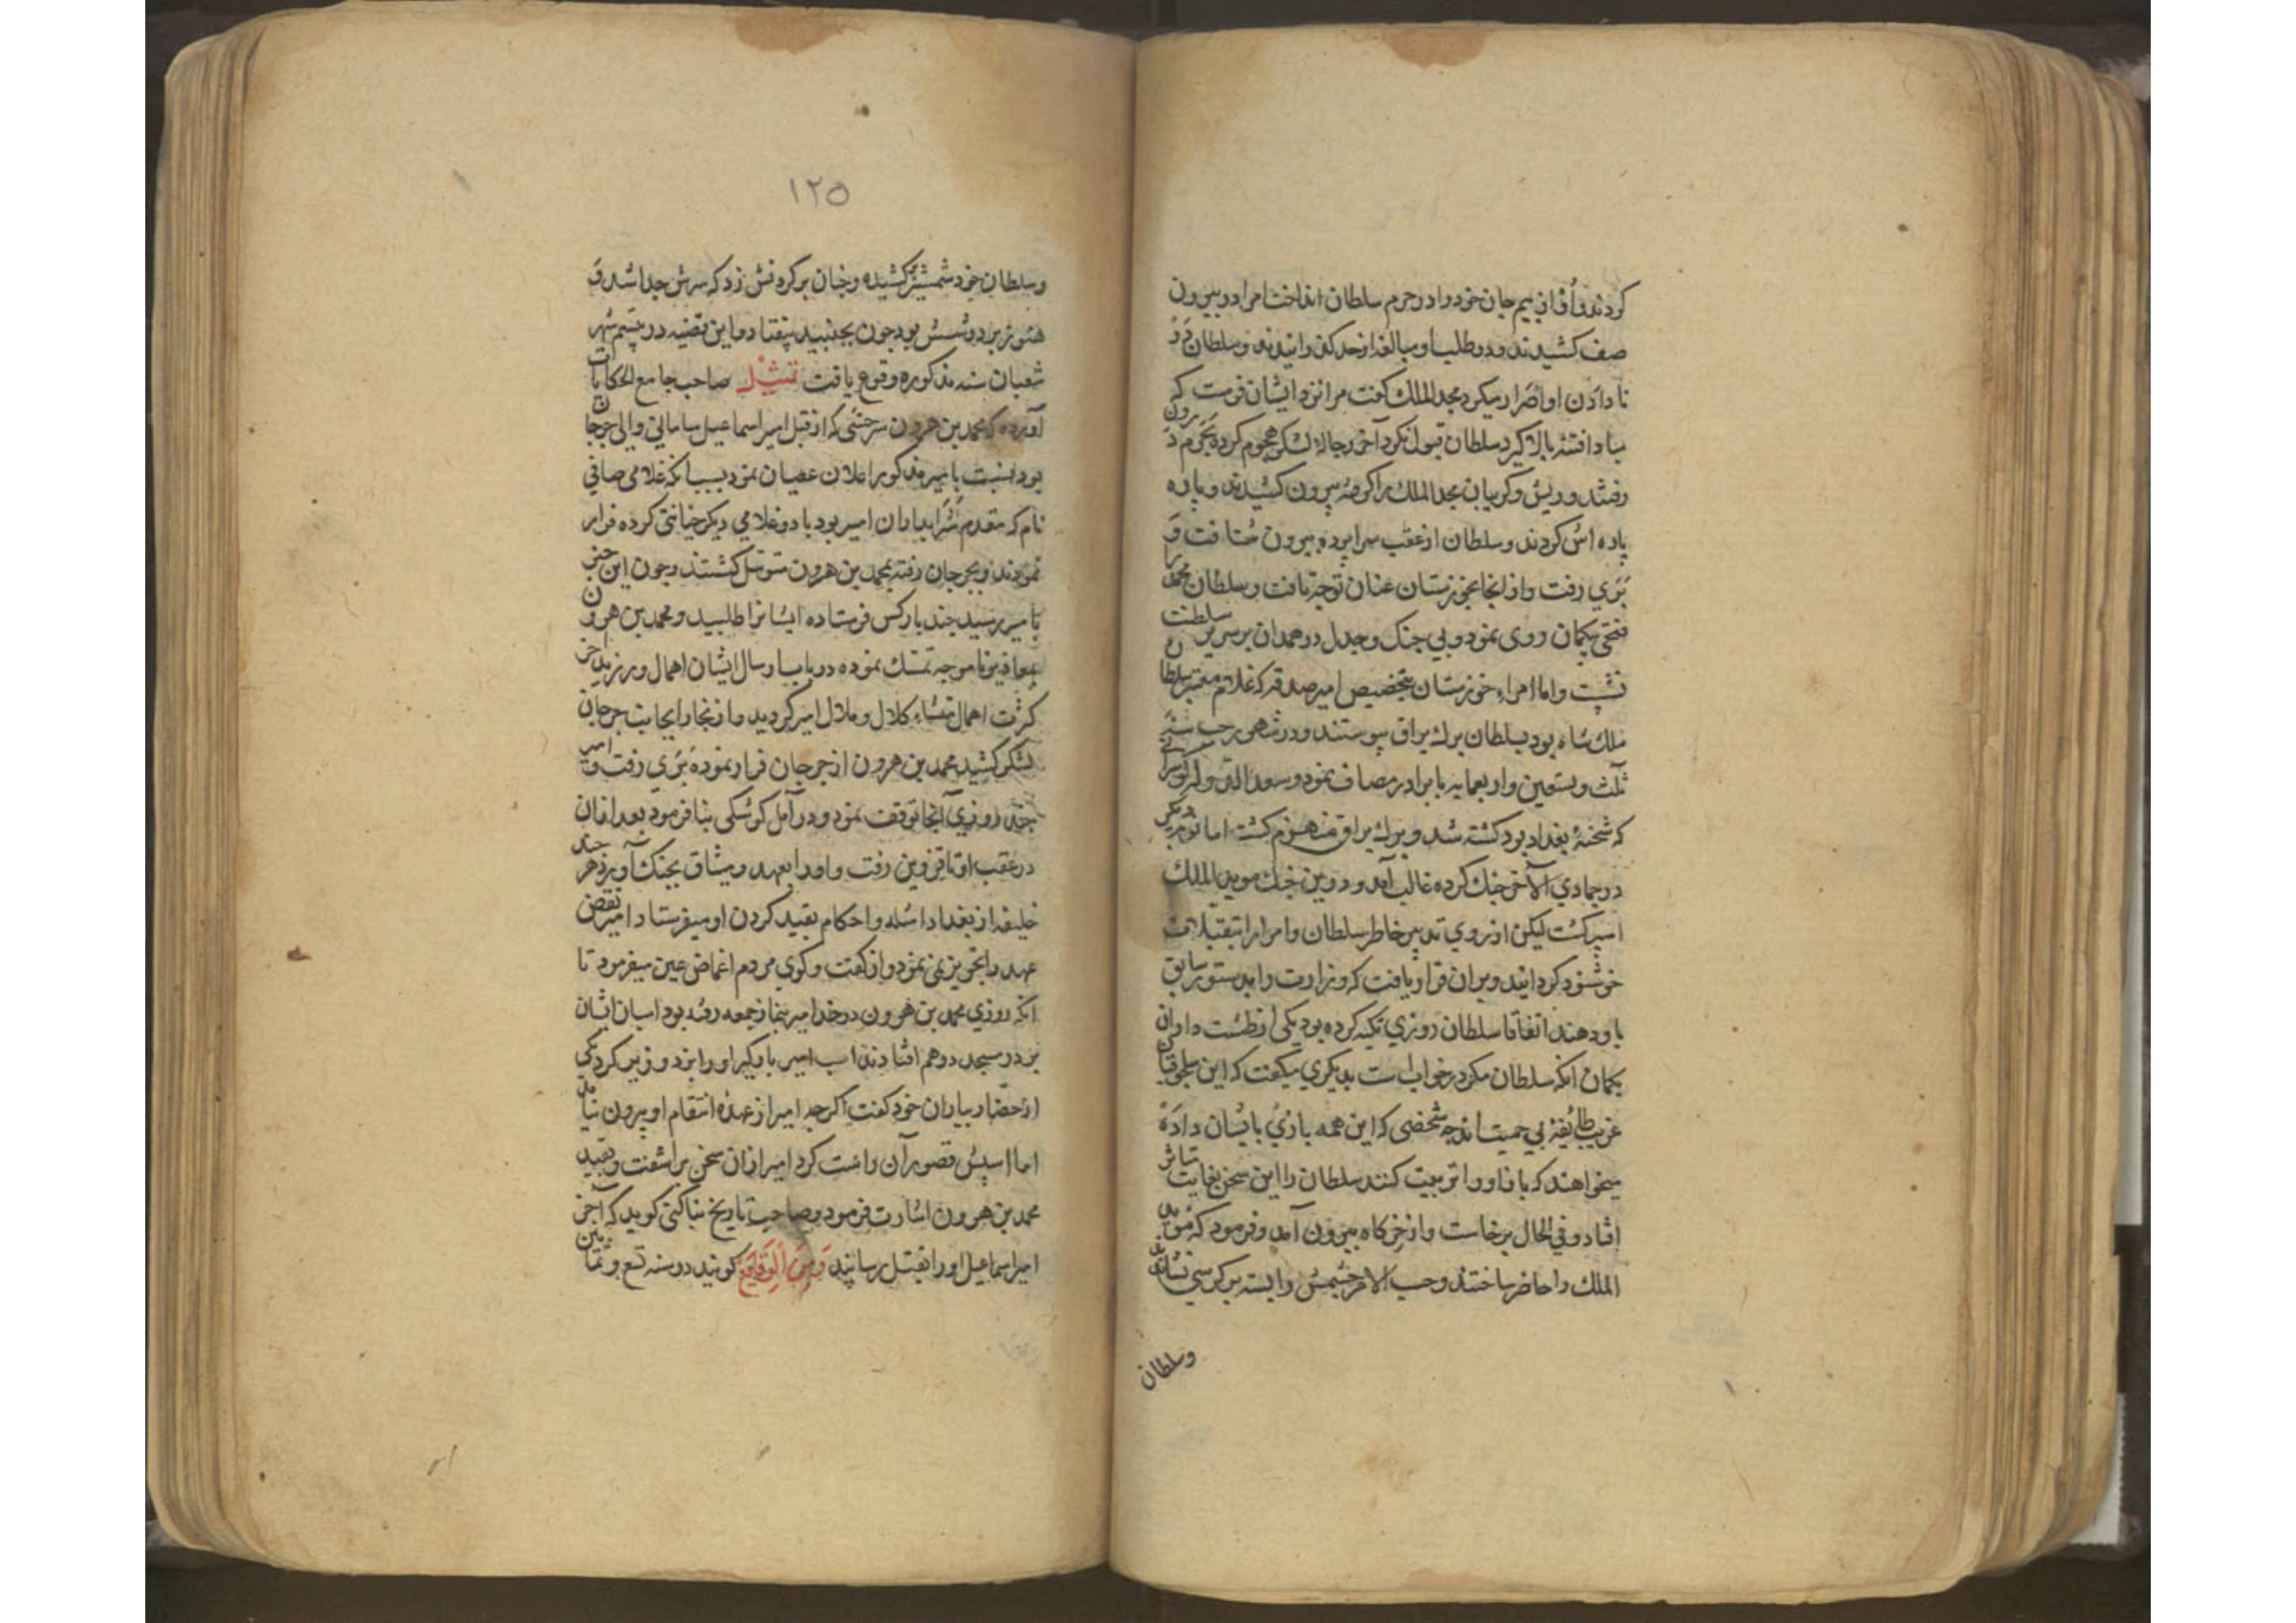 کردند و او از بیم جان خود را در حرم سلطان انداخت امرا در بیرون
صف کشیدند و در طلب او مبالغه از حد گذرانیدند و سلطان در
نا دادن او اصرار میکرد مجد الملک کفت مرا نزد ایشان فرست که
مبادا فتنه بالا کیرد سلطان قبول نکرد آخر رجاله لشکر هجوم کرده بحرم در رون
رفتند و ریش و کریبان مجد الملک را کرفته بیرون کشیدند و پاره
پاره اش کردند و سلطان از عقب سراپرده بیرون شتافت و
بری رفت و از انجا بخوزستان عنان توجه تافت و سلطان محمد را
فتحی بکمان روی نمود و بی جنک و جدل در همدان بر سریر سلطنت
نشست و اما امراء خوزستان بتخصیص امیر صدقه که غلام معتبر سلطان
ملک شاه بود بسلطان برک یراق پیوستند و در شهور رجب سنه
ثلث و تسعین و اربعمایه با برادر مصاف نمود و سعد الدوله کوهر ائین
که شحنهٔ بغداد بود کشته شد و برک یراق منهزم کشت اما نوبت دیکر
در جمادی الآخر جنک کرده غالب آمد و درین جنک موید الملک
اسیر کشت لیکن از روی تدبیر خاطر سلطان و امرا را بتقبلات
خوشنود کردانید و بران قرار یافت که وزارت را بدستور سابق
باو دهند اتفاقا سلطان روزی تکیه کرده بود یکی از طشت داران
بکمان انکه سلطان مکر در خواب است بدیکری میکفت که این سلجوقیان
غریب طایفهٔ بی حمیت اند چه شخصی که این همه بازی بایشان داده
میخواهند که باز او را تربیت کنند سلطان را این سخن بغایت تاثر
افتاد و فی الحال برخاست و از خرکاه بیرون آمد و فرمود که موید
الملک را حاضر ساختند و حسب الامر چشمش را بسته بر کرسی نشاندند
وسلطان
۱۲۵
و سلطان خود شمشیر کشیده و چنان بر کردنش زد که سرش جدا شد و
هنوز بر دوشش بود چون بجنبید بیفتاد و این قضیه در بیستم شهر
شعبان سنه مذکوره وقوع یافت تمثیل صاحب جامع الحکایات
آورده که محمد بن هرون سرخسی که از قبل امیر اسماعیل سامانی والی جرجان
بود نسبت بامیر مذکور اعلان عصیان نمود بسبب انکه غلامی صافی
نام که مقدم شرابداران امیر بود با دو غلامی دیکر خیانتی کرده فرار
نمودند و بجرجان رفته بمحمد بن هرون متوسل کشتند و چون این خبر
بامیر رسید چند بار کس فرستاده ایشانرا طلبید و محمد بن هرون
بمعاذیر ناموجه تمسک نموده در باب ارسال ایشان اهمال ورزید آخر
کثرت اهمال منشاء کلال و ملال امیر کردید و از بخارا بجانب جرجان
لشکر کشید محمد بن هرون از جرجان فرار نموده بری رفت و امیر
چند روزی آنجا توقف نمود و در آمل کوشکی بنا فرمود بعد ازان
در عقب او تا قزوین رفت و او را بعهد و میثاق بچنک آورد هر چند
خلیفه از بغداد اسئله و احکام بقید کردن او میفرستاد امیر نقض
عهد را تجویز نمی نمود و از کفت و کوی مردم اغماض عین میفرمود تا
انکه روزی محمد بن هرون در خدا امیر بنماز جمعه رفته بود اسبان ایشان
بر در مسجد در هم افتادند اسب امیر بارگیر او را بزد و زیر کرد یکی
از حضار بیاران خود کفت اکرچه امیر از عهدهٔ انتقام او بیرون نیامد
اما اسپش قصور آن راست کرد امیر ازان سخن بر اشفت و بقید
محمد بن هرون اشارت فرمود و صاحب تاریخ بناکتی کوید که آخر
امیر اسماعیل او را بقتل رسانید و من الوقایع کویند در سنه تسع و ثمانین